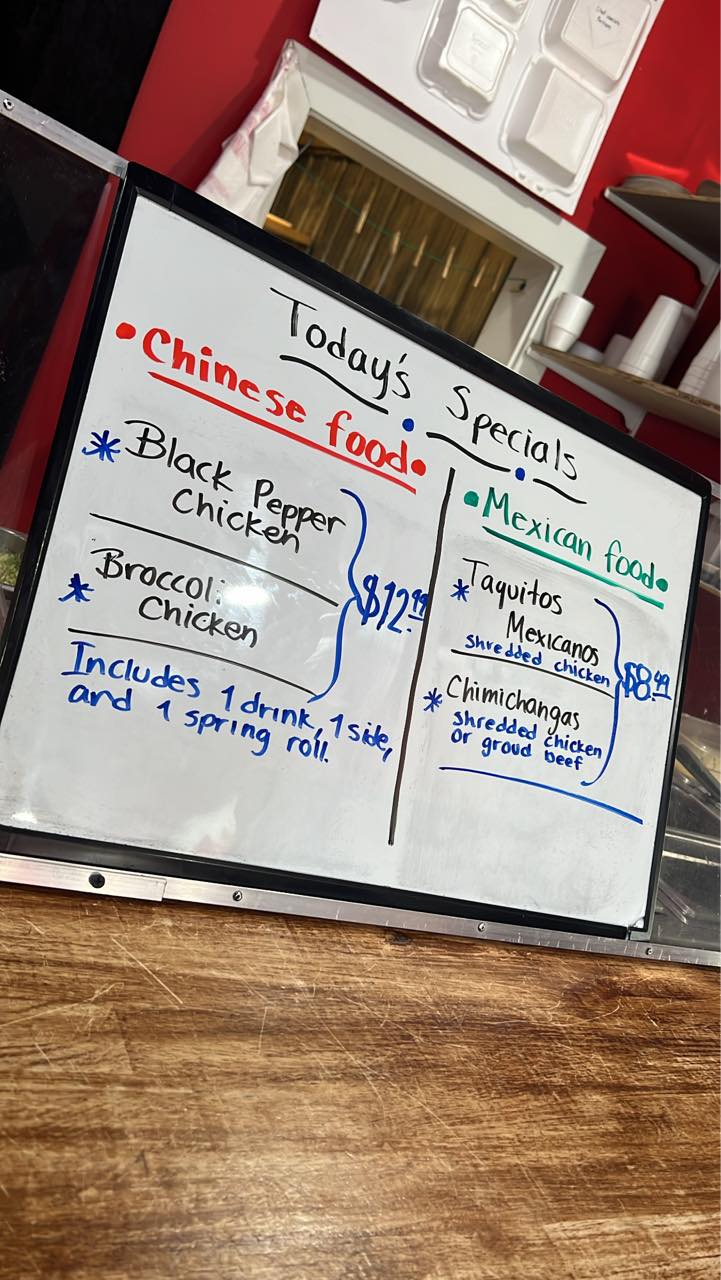 Today's Specials
• Chinese food •
* Black Pepper
Chicken
* Broccoli
Chicken
$12.99
Includes 1 drink, 1 side,
and 1 spring roll.
• Mexican food •
* Taquitos
Mexicanos
shredded chicken
* Chimichangas
shredded chicken
or groud beef
$8.99